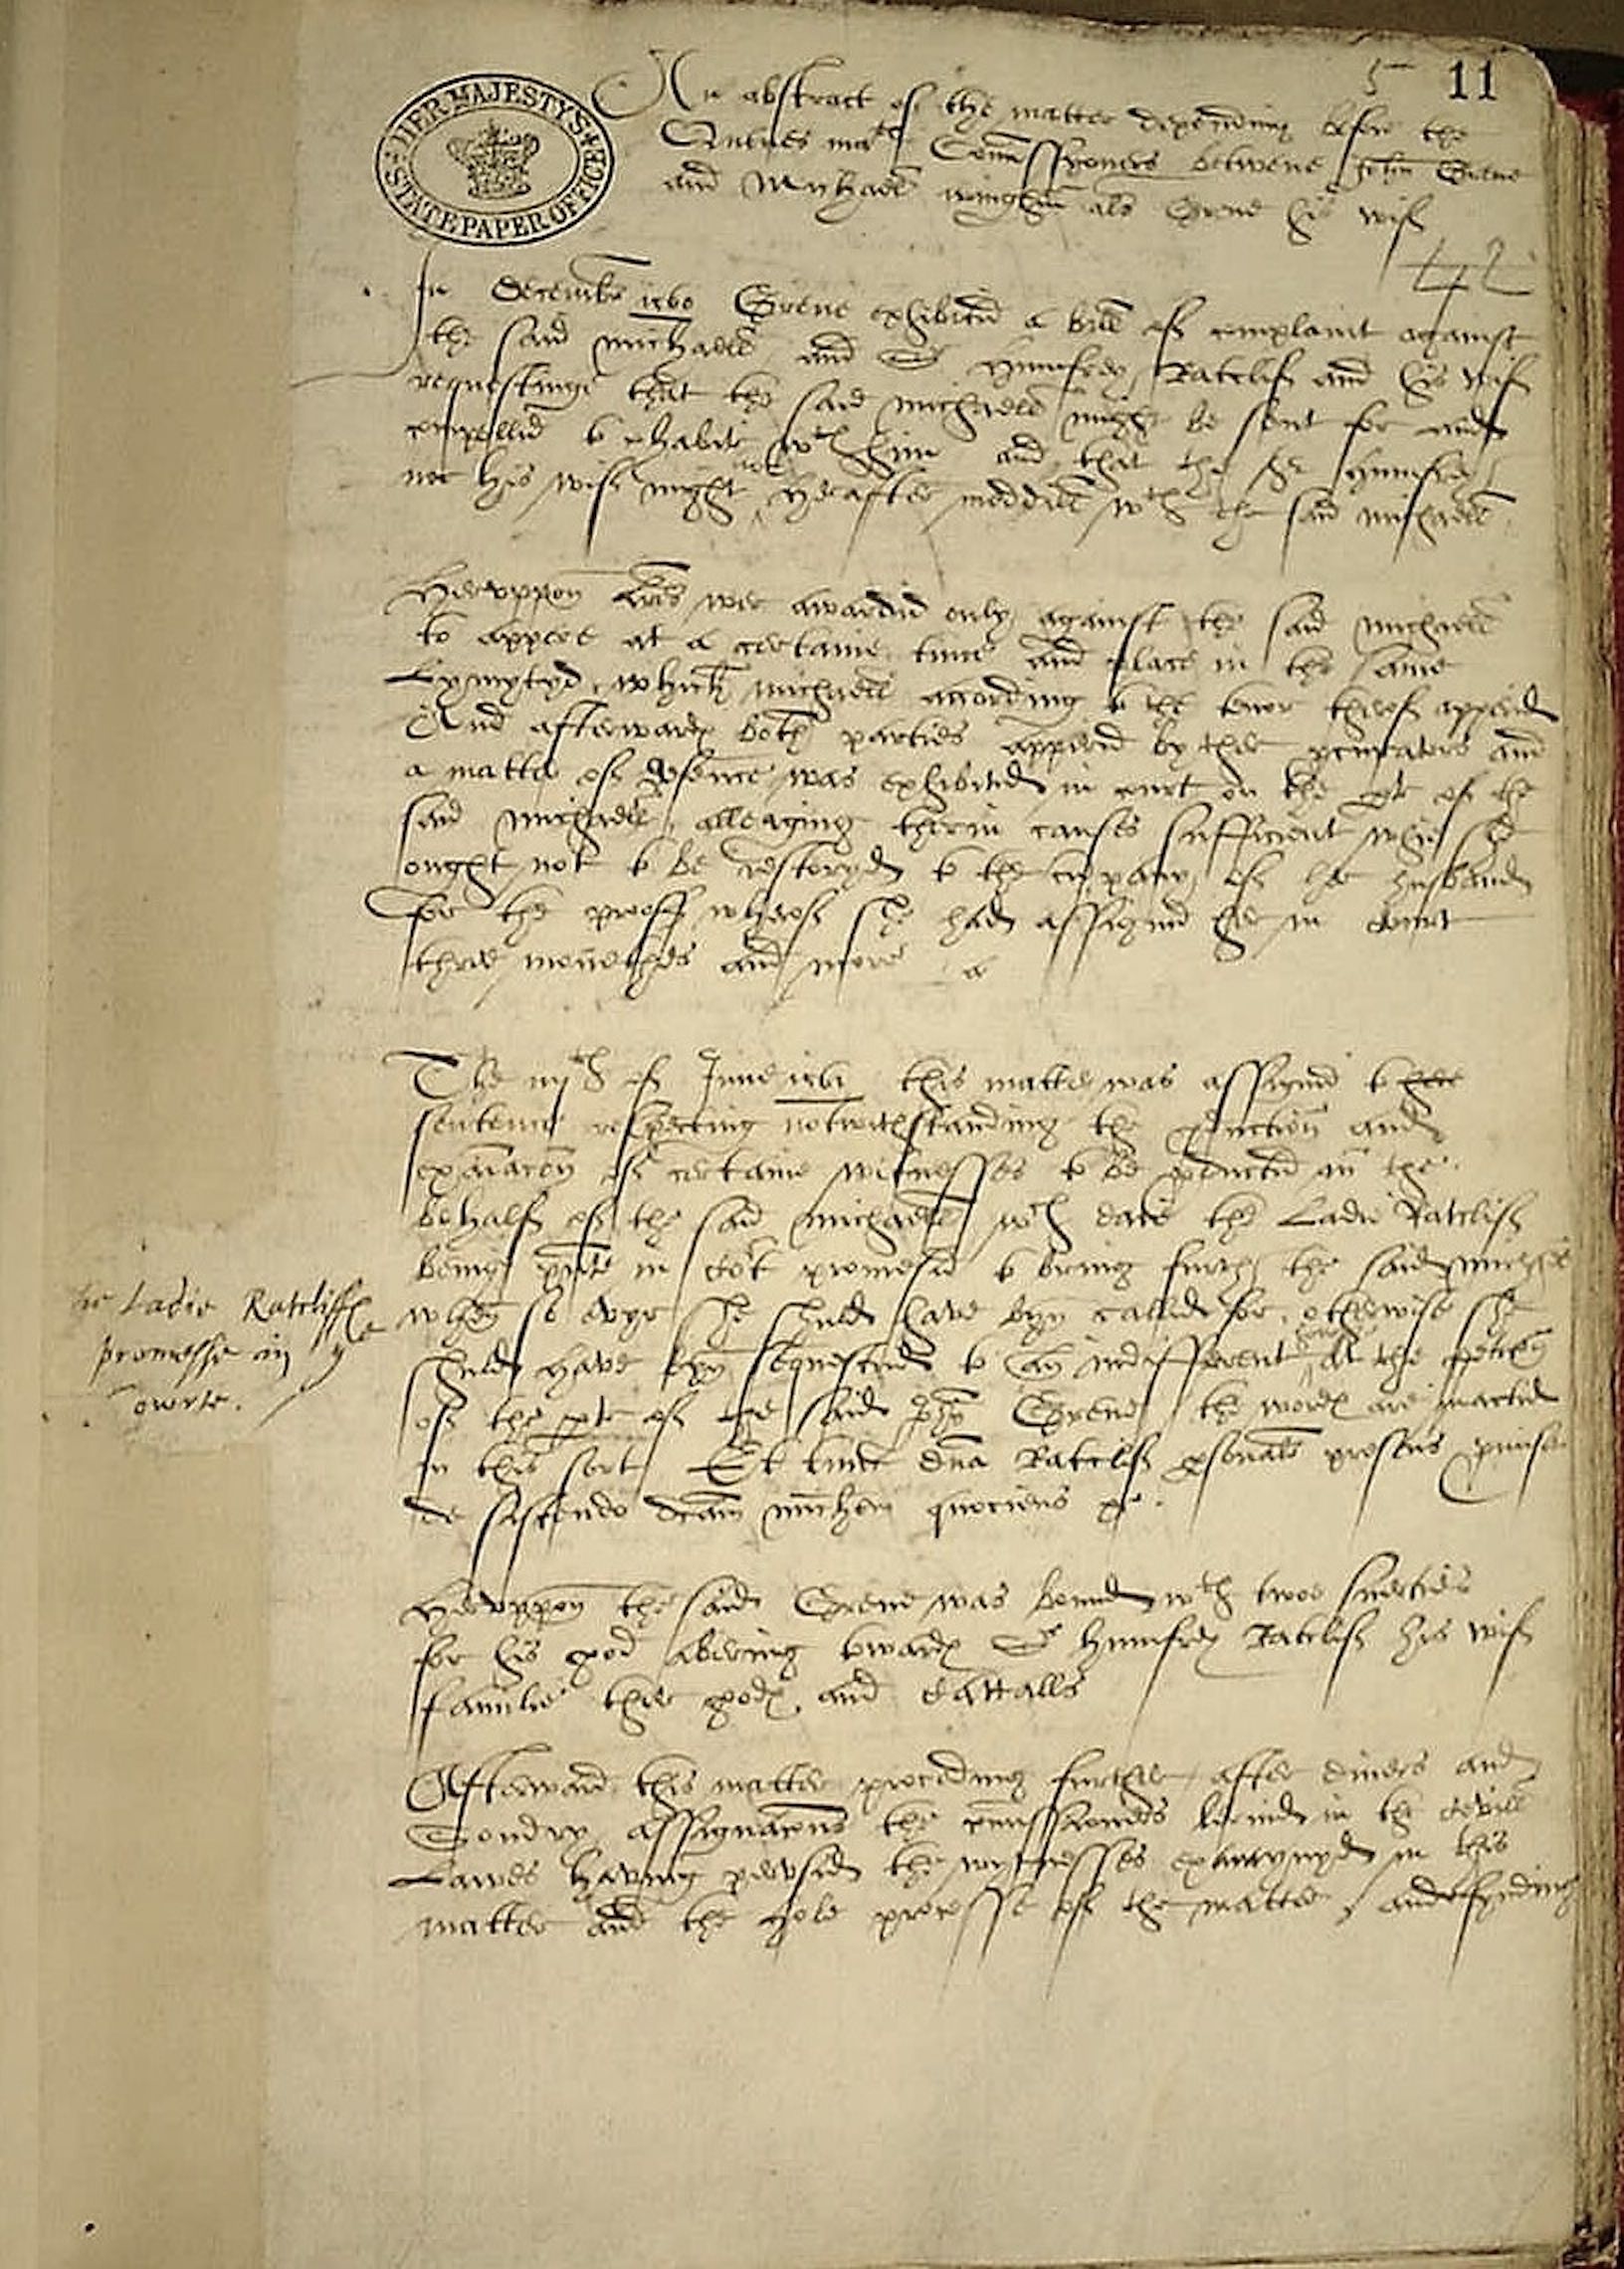 5 11
HER MAJESTY'S STATE PAPER OFFICE
An abstract of the matter depending before the
Quenes mates Comissyoners betwene John Grene
and Mychaell als Grene his wif
42
In decembre 1560 Grene exhibited a bill of complaint against
the said michaell and Sr Humfrey Ratclif and his wif
requestinge that the said michaell might be sent for and
compellid to cohabite wth him and that the Sr Humfrey
nor his wife might not herafter meddell wth the said michaell
Heruppon lres wer awardid only against the said michaell
to appere at a certaine time and place in the same
Lymytyd, which michaell according to the tenor therof apperid
And afterwardes both parties apperid by ther procurators and
a matter of defence was exhibited in court on the pte of the
said michaell, alleaging therin causes sufficient whie she
ought not to be restoryd to the cumpany of her husband
For the prooff wherof she had assignid her in court
three monethes and more
The of June 1561 this matter was assignid to here
sentence respecting notwithstanding the production and
examacon of certaine witnesses to be producid on the
behalf of the said michaell wth daie the Ladie Ratclif
being pnte in court promesid to bring furth the said michaell
when so ever she shuld have byn callid for, otherwise she
shuld have byn sequestrid to an indifferent at the peticon
of the pte of the said John Grene the wordes are inactid
in this sort Et tunc dna Ratclif psonalr presens promisit
de sistendo dcam michem quociens &c.
the Ladie Ratcliffe
promesse in ye
cowrte.
Heruppon the said Grene was bound wth twoo suerties
for his good abering towardes Sr humfrey Ratclif his wif
familie ther goodes and cattalls
Afterward this matter proceding further after divers and
Sondry assignacons the comissioners lernid in the civill
Lawes having perusid the wytnesses examynyd in this
matter and the hole processe of the matter, and fynding